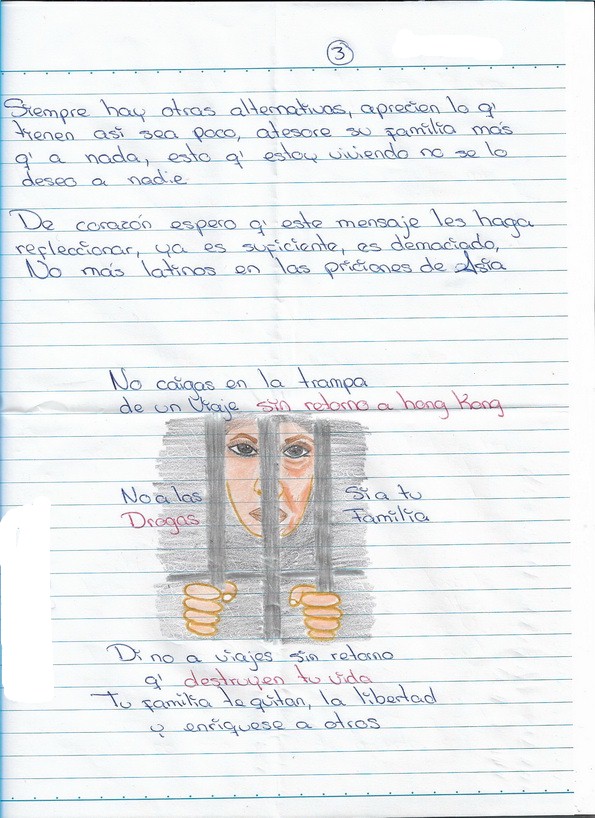 3
Siempre hay otras alternativas, aprecien lo q'
tienen asi sea poco, atesore su familia más
q' a nada, esto q' estoy viviendo no se lo
deseo a nadie
De corazón espero q' este mensaje les haga
refleccionar, ya es suficiente, es demaciado,
No más latinos en las priciones de Asia
No caigas en la trampa
de un viaje sin retorno a hong Kong
No a las
Drogas
Si a tu
Familia
Di no a viajes sin retorno
q' destruyen tu vida
Tu familia te quitan, la libertad
y enriquese a otros